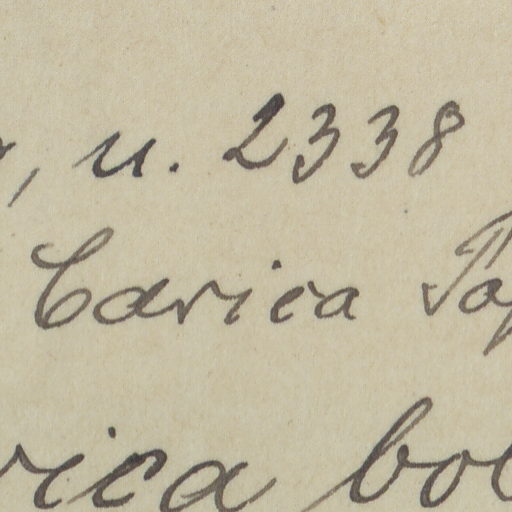 , n. 2338
Carica Pap
rica bot